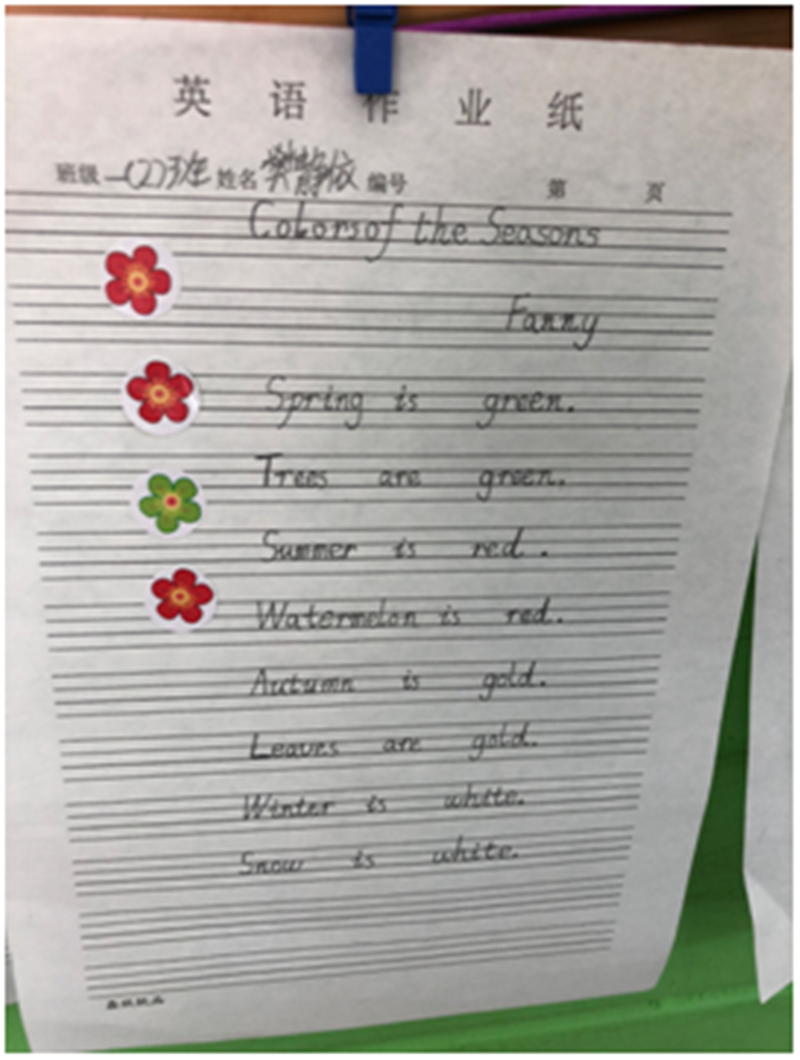 英语作业纸
班级 一(2)班 姓名 樊静依 编号 第 页
Colors of the Seasons
Fanny
Spring is green.
Trees are green.
Summer is red.
Watermelon is red.
Autumn is gold.
Leaves are gold.
Winter is white.
Snow is white.